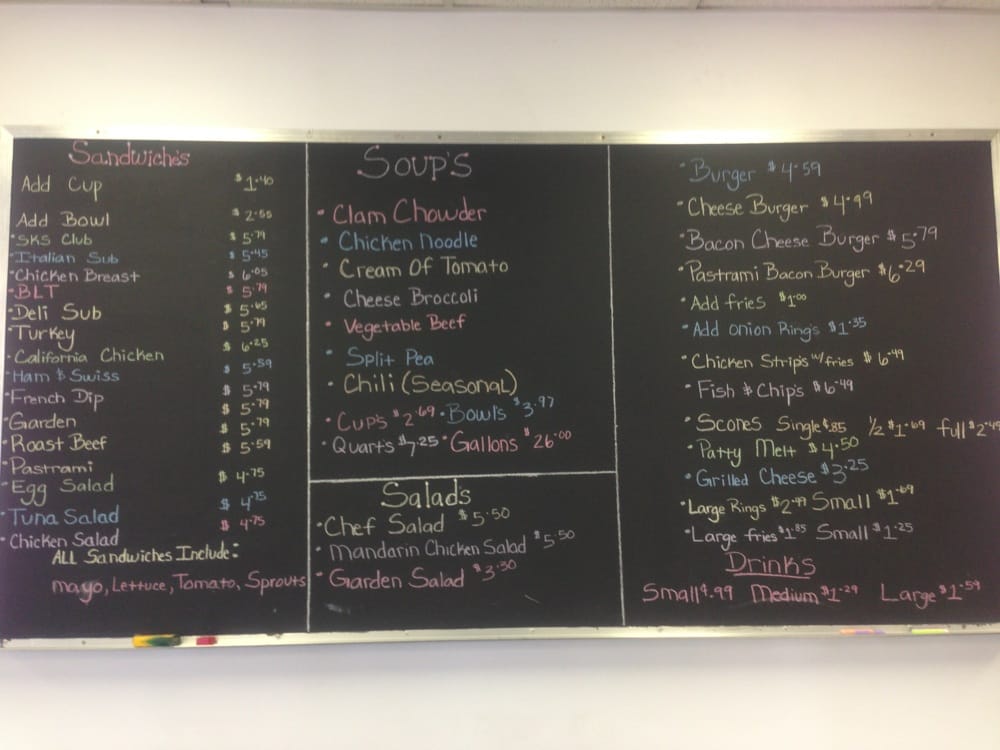 Sandwiche's
Add Cup $1.40
Add Bowl $2.55
·SKS Club $5.79
·Italian Sub $5.45
·Chicken Breast $6.05
·BLT $5.79
·Deli Sub $5.65
·Turkey $5.79
·California Chicken $6.25
·Ham & Swiss $5.59
·French Dip $5.79
·Garden $5.79
·Roast Beef $5.79
·Pastrami $5.59
·Egg Salad $4.75
·Tuna Salad $4.75
·Chicken Salad $4.75
ALL Sandwiches Include:
mayo, Lettuce, Tomato, Sprouts
Soup's
·Clam Chowder
·Chicken Noodle
·Cream Of Tomato
·Cheese Broccoli
·Vegetable Beef
·Split Pea
·Chili (Seasonal)
·Cup's $2.69 ·Bowl's $3.97
·Quart's $7.25 ·Gallons $26.00
Salad's
·Chef Salad $5.50
·Mandarin Chicken Salad $5.50
·Garden Salad $3.30
·Burger $4.59
·Cheese Burger $4.99
·Bacon Cheese Burger $5.79
·Pastrami Bacon Burger $6.29
·Add fries $1.00
·Add onion Ring's $1.35
·Chicken Strip's w/fries $6.49
·Fish & Chip's $6.49
·Scones Single $.85 1/2 $1.69 full $2.45
·Patty Melt $4.50
·Grilled Cheese $3.25
·Large Rings $2.99 Small $1.69
·Large fries $1.85 Small $1.25
Drinks
Small $.99 Medium $1.29 Large $1.59